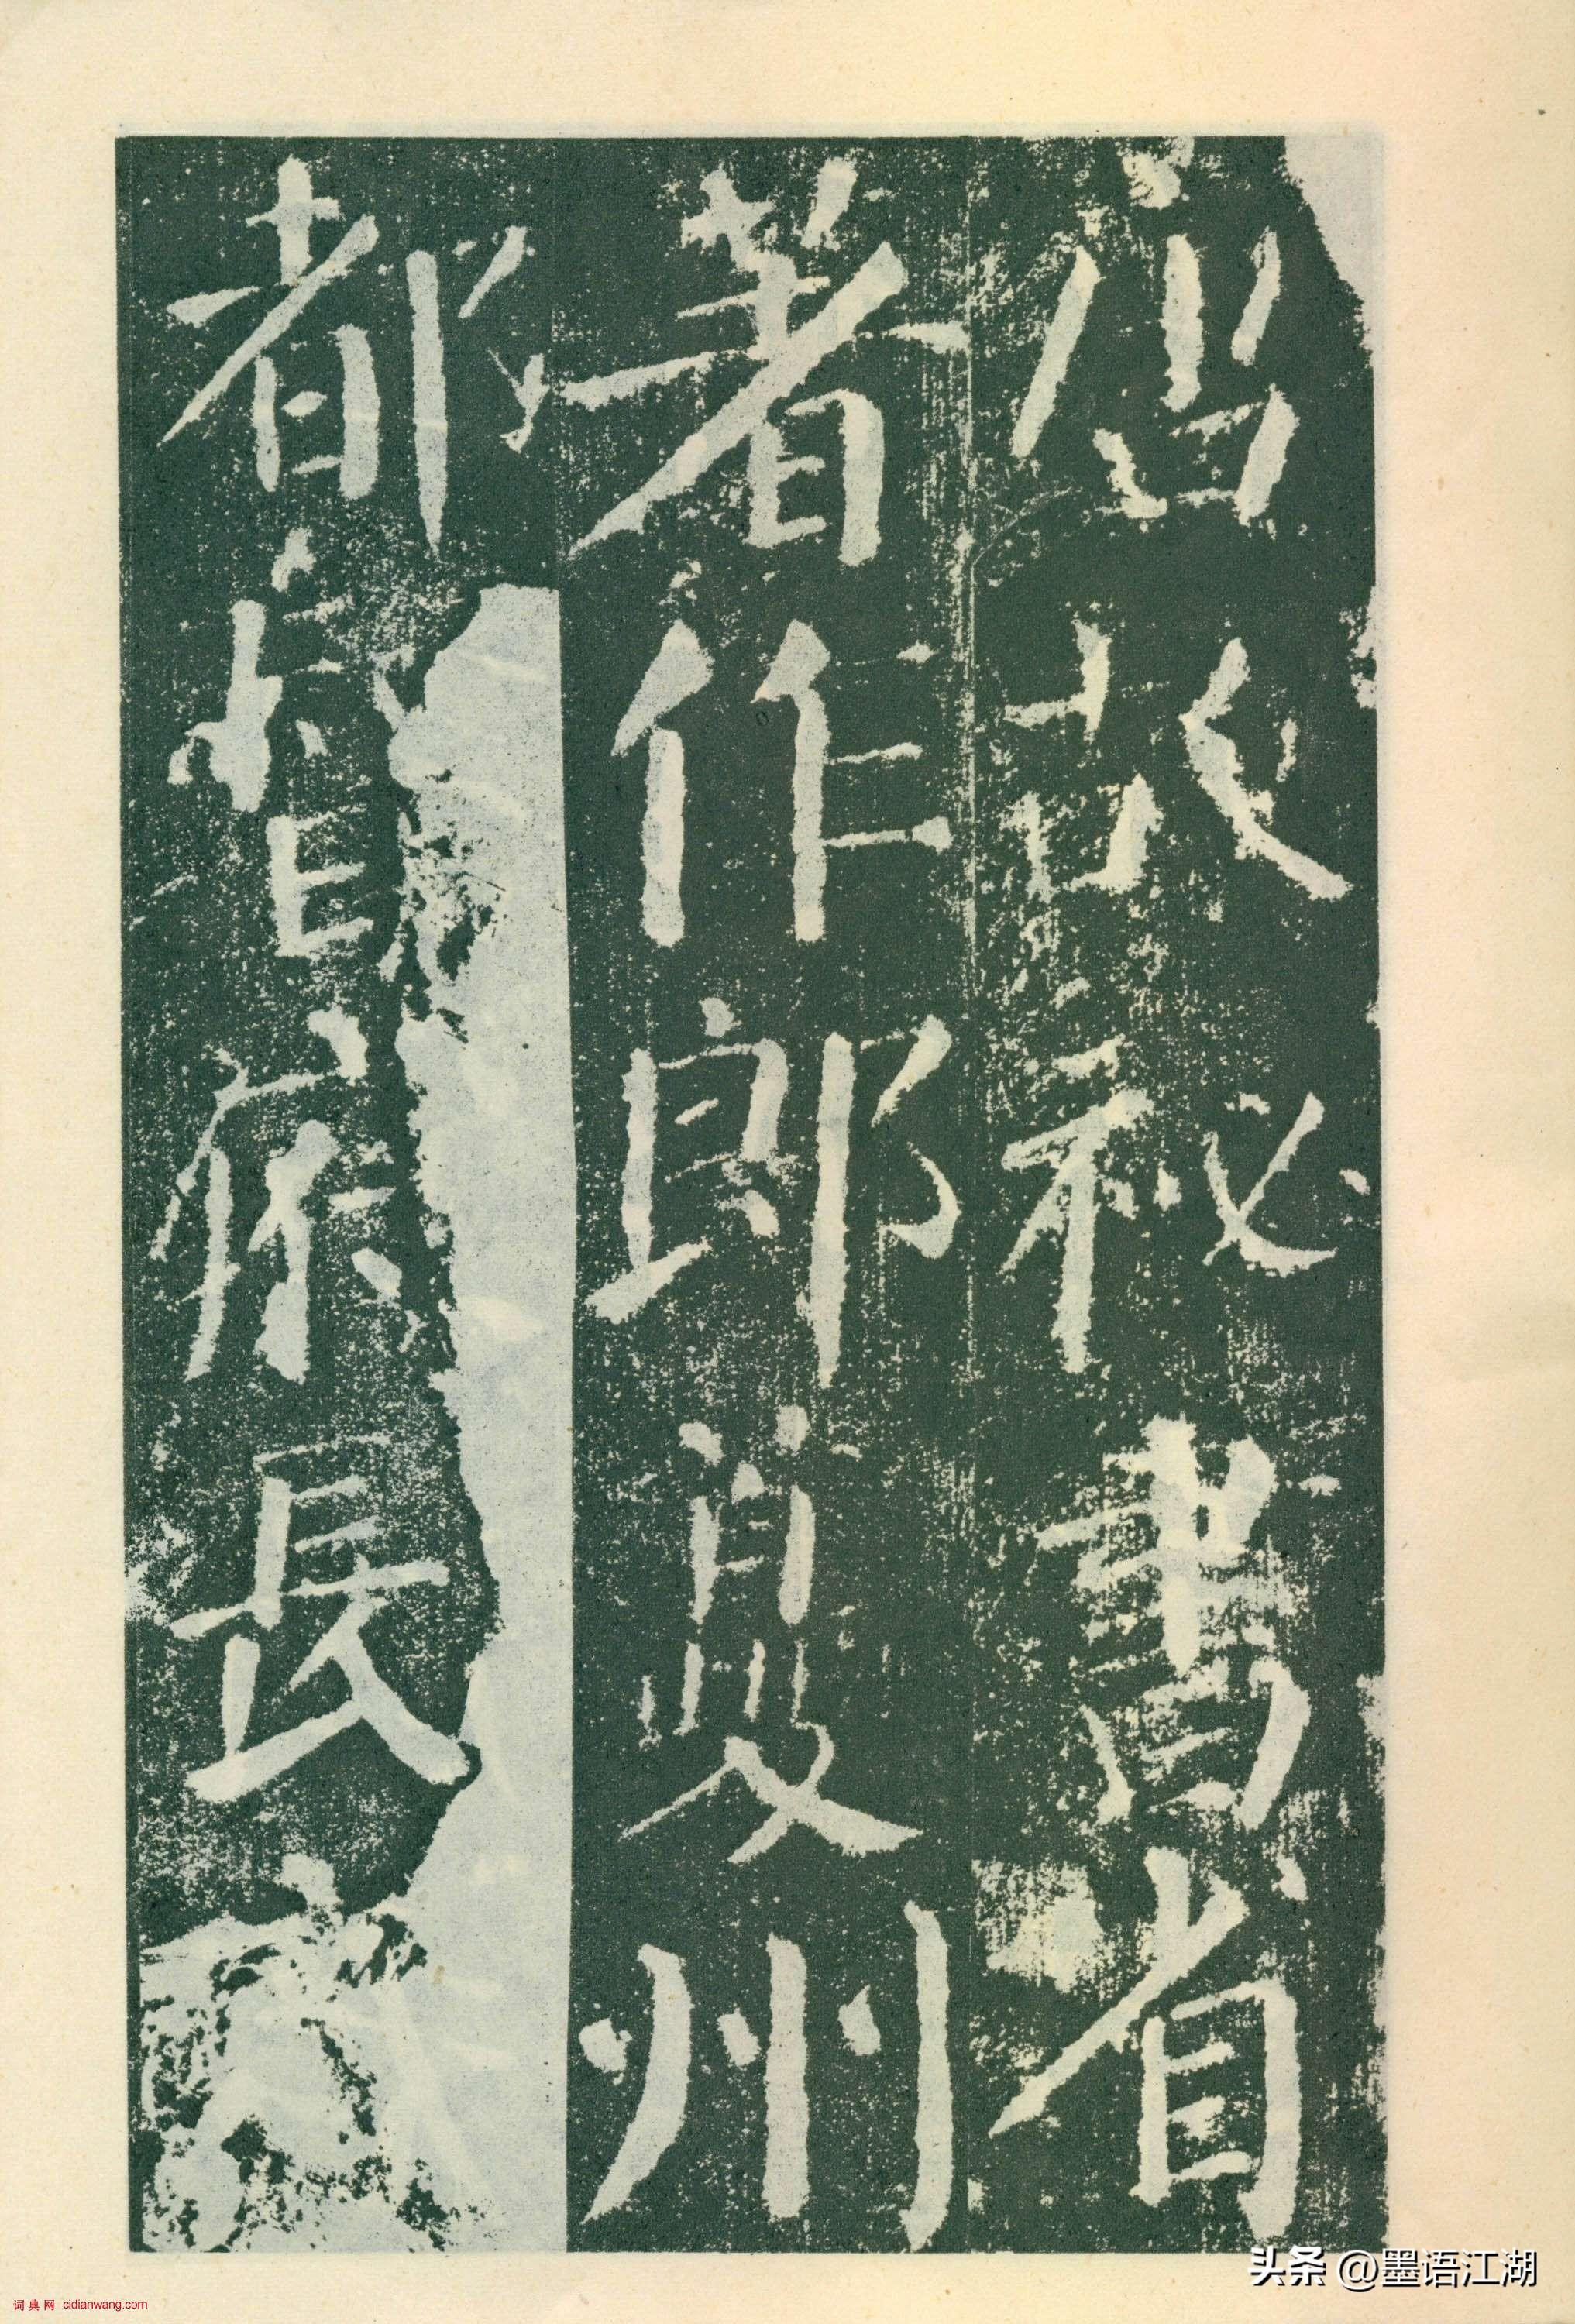 唐故祕書省
著作郎夔州
都督府長
头条 @墨语江湖
词典网 cidianwang.com